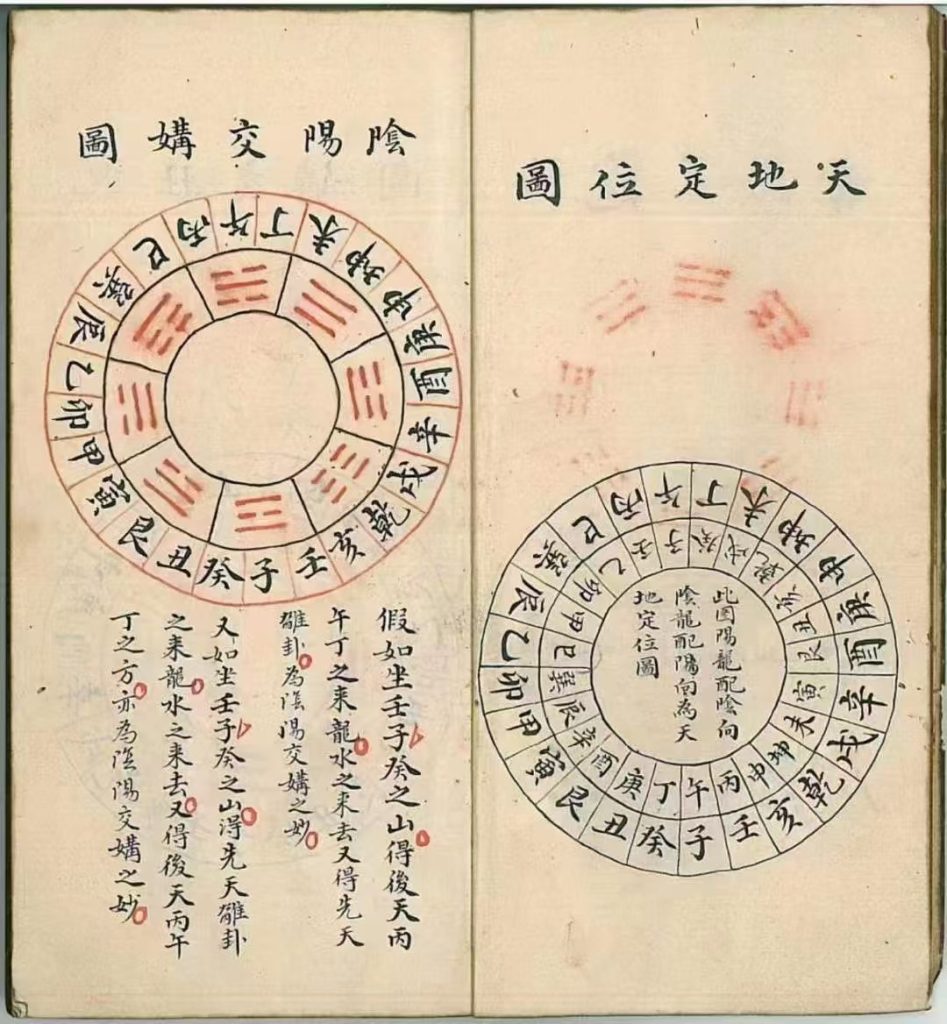 天地定位圖
午丁未坤申庚酉辛戌乾亥壬子癸丑艮寅甲卯乙辰巽巳丙
子癸戌乾亥丑艮寅未坤申丙午丁庚酉辛辰巽巳甲卯乙壬
此圖陽龍配陰向
陰龍配陽向為天
地定位圖
陰陽交媾圖
午丁未坤申庚酉辛戌乾亥壬子癸丑艮寅甲卯乙辰巽巳丙
假如坐壬子癸之山得後天丙
午丁之来龍水之来去又得先天
離卦為陰陽交媾之妙
又如坐壬子癸之山得先天離卦
之来龍水之来去又得後天丙午
丁之方亦為陰陽交媾之妙